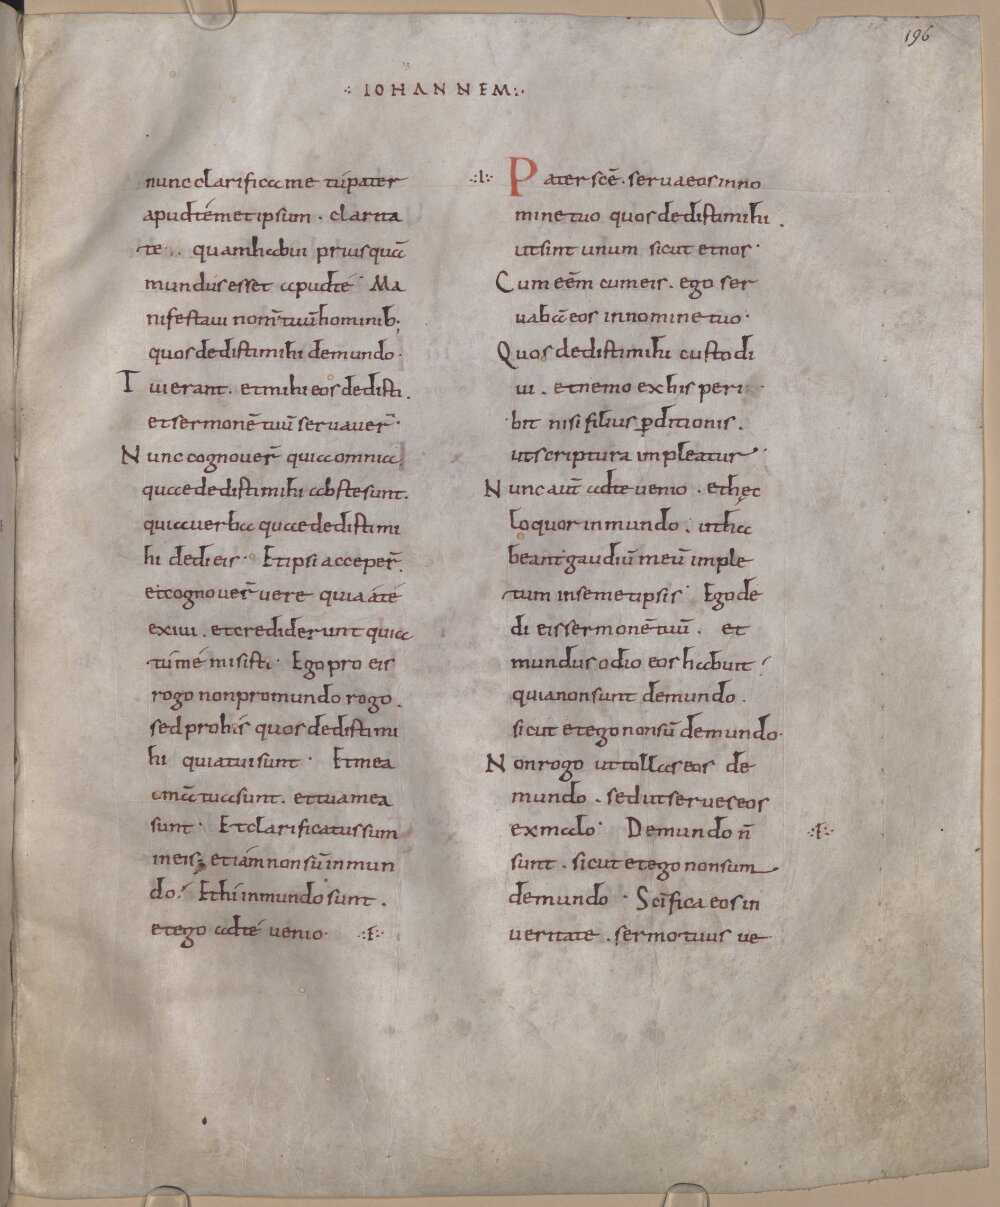 196
·:· IOHANNEM:·
nunc clarifica me tu pater
apud témet ipsum · clarita
te ·, quam habui priusquā
mundus esset apud té · Ma
nifestaui nom̄ tuū hominib;
quos dedisti mihi de mundo ·
Tui erant · et mihi eos dedisti ·
et sermonē tuū seruauer̄ ·
Nunc cognouer̄ quia omnia
quae dedisti mihi abs te sunt ·
quia uerba quae dedisti mi
hi dedi eis · Et ipsi acceper̄ ·
et cognouer̄ uere quia á té
exiui · et crediderunt quia
tú mé misisti · Ego pro eis
rogo non pro mundo rogo ·
sed pro hís quos dedisti mi
hi quia tui sunt · Et mea
om̄a tua sunt · et tua mea
sunt · Et clarificatus sum
in eis; et iám non sū in mun
do · Et hí in mundo sunt ·
et ego ad té uenio · ·:F:·
·:l:· Pater scē · serua eos in no
mine tuo quos dedisti mihi ·
ut sint unum sicut et nos ·
Cum eēm cum eis · ego ser
uabā eos in nomine tuo ·
Quos dedisti mihi custodi
ui · et nemo ex his peri
bit nisi filius ꝑditionis ·
ut scriptura impleatur ·
Nunc aūt ad te uenio · et hęc
loquor in mundo · ut ha
beant gaudiū meū imple
tum in semetipsis · Ego de
di eis sermonē tuū · et
mundus odio eos habuit
quia non sunt de mundo ·
sicut et ego non sū de mundo ·
Non rogo ut tollas eos de
mundo · sed ut serues eos
ex malo · De mundo n̄ ·:F:·
sunt · sicut et ego non sum
de mundo · Sc̄ifica eos in
ueritate · sermo tuus ue